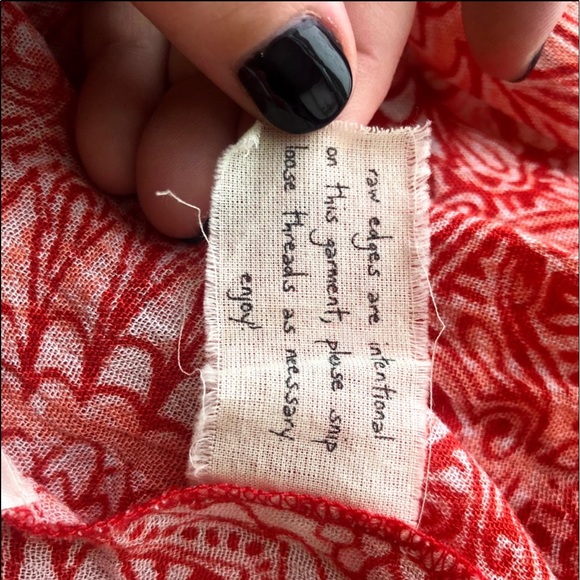 raw edges are intentional
on this garment, please snip
loose threads as necessary
enjoy!